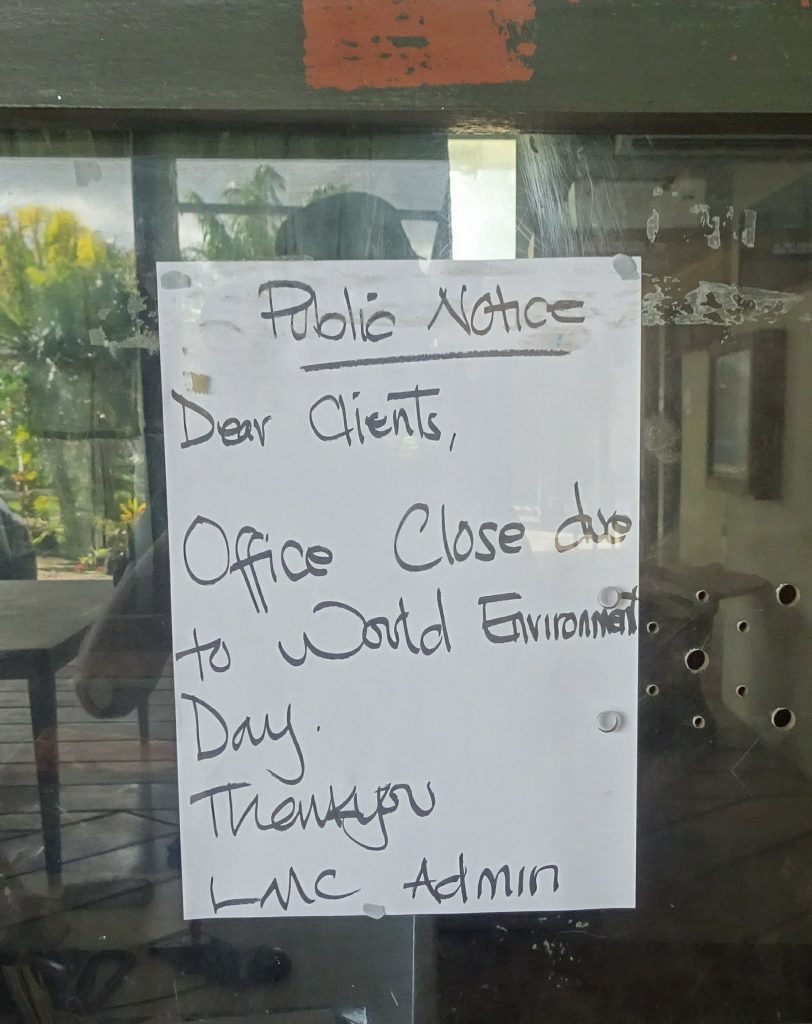 Public Notice
Dear Clients,
Office Close due
to World Environment
Day.
Thankyou
LMC Admin